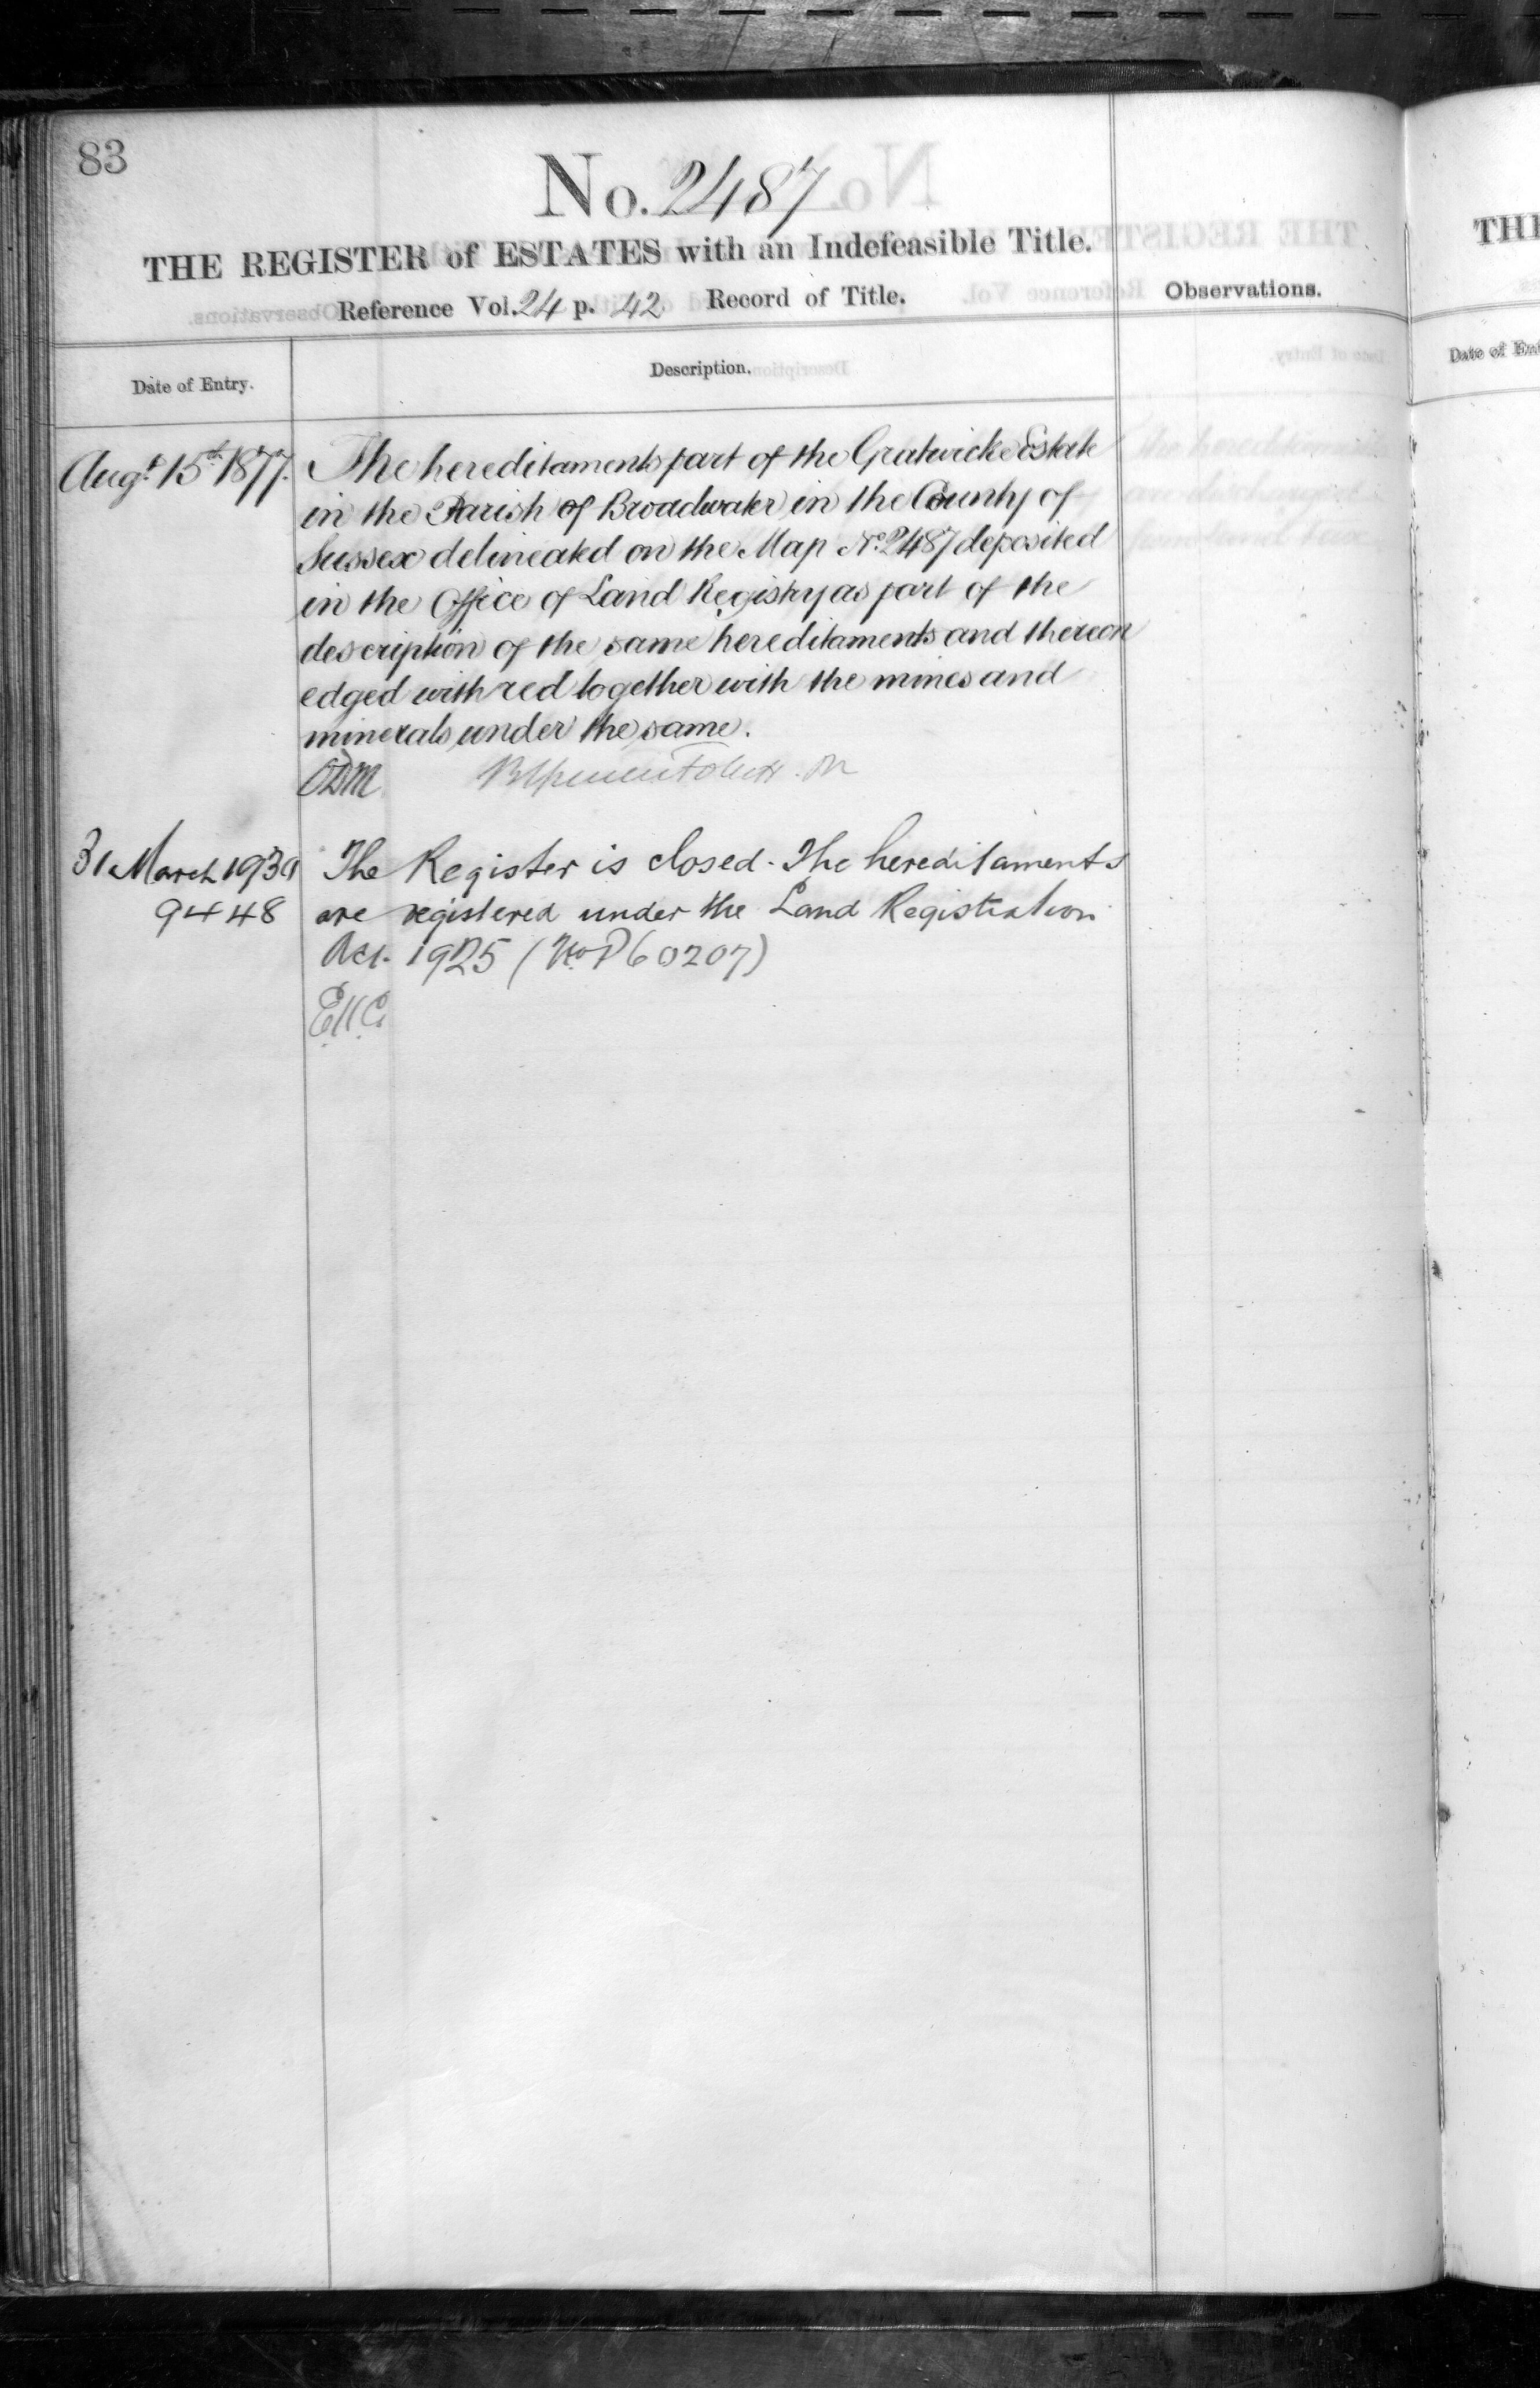 83
No. 2487
THE REGISTER of ESTATES with an Indefeasible Title.
Reference Vol. 24 p. 42 Record of Title.
Observations.
Date of Entry.
Description.
Augt. 15th 1877.
The hereditaments part of the Gratwicke Estate
in the Parish of Broadwater in the County of
Sussex delineated on the Map No. 2487 deposited
in the Office of Land Registry as part of the
description of the same hereditaments and thereon
edged with red together with the mines and
minerals under the same.
31 March 1939
9448
The Register is closed. The hereditaments
are registered under the Land Registration
Act. 1925 (No. P60207)
THE
Date of Ent